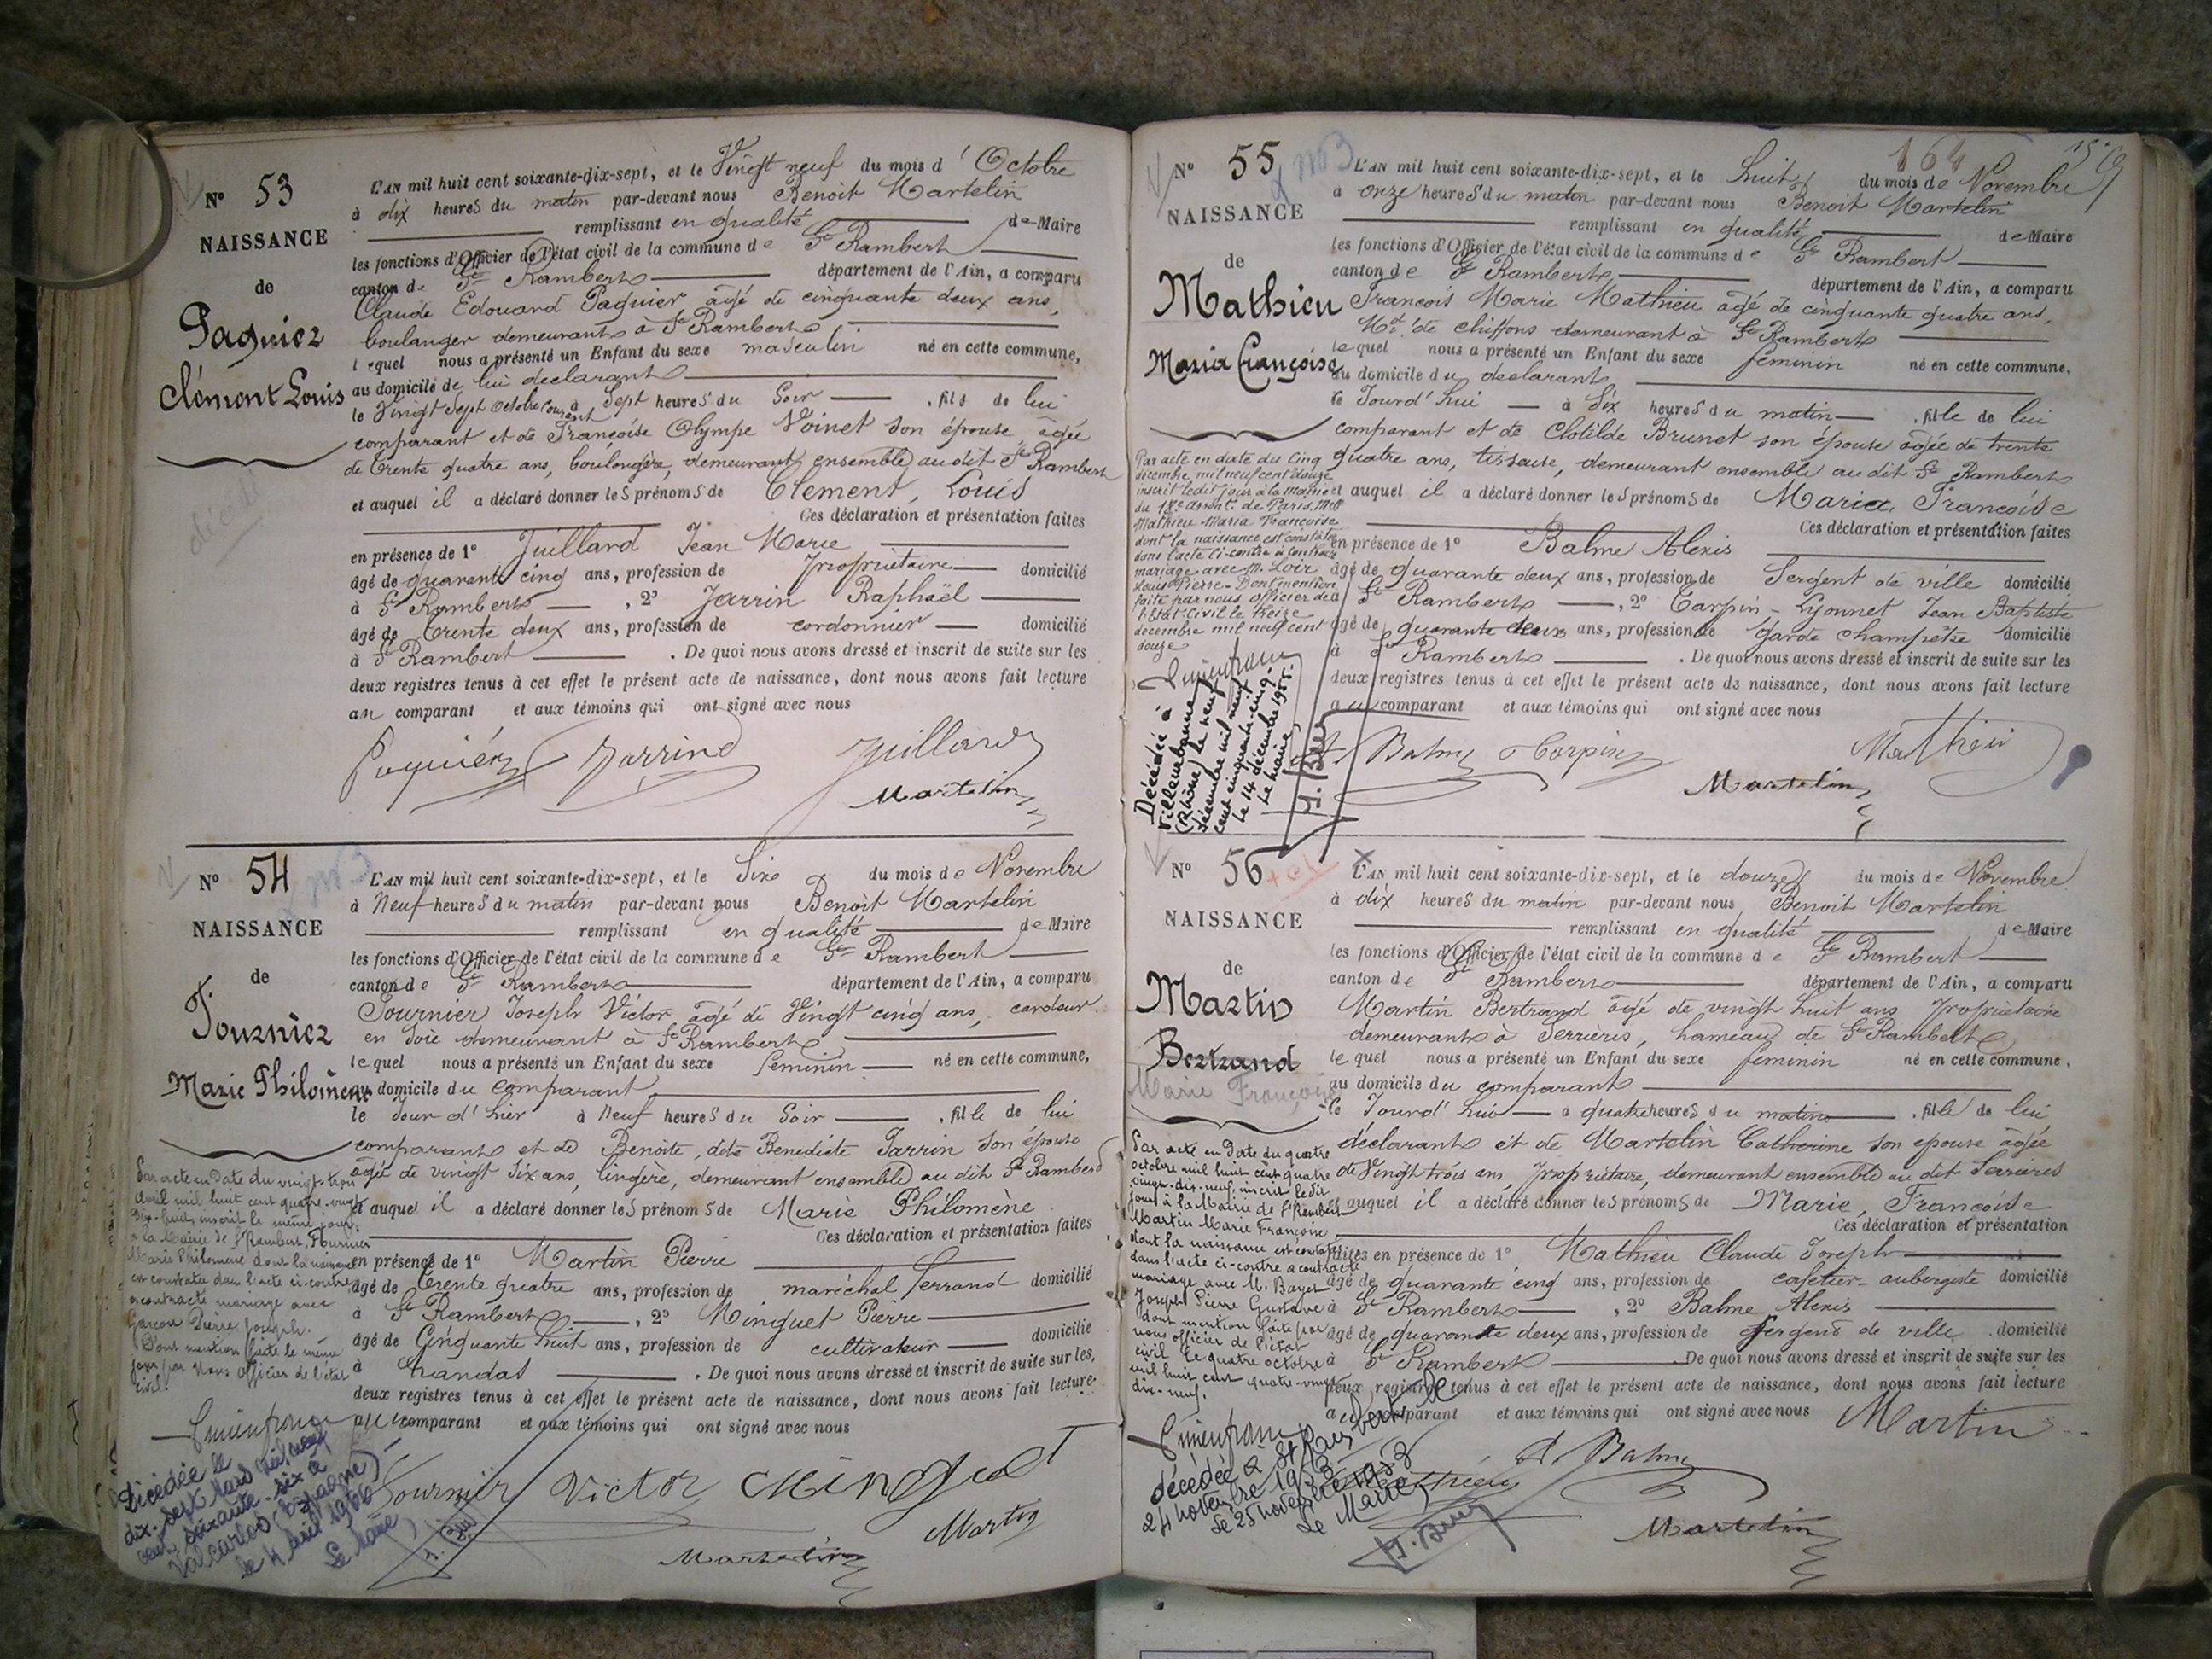 N° 53
NAISSANCE
de
Paquiez
Clément Louis
décédé
L'AN mil huit cent soixante-dix-sept, et le Vingt neuf du mois d'Octobre
à dix heures du matin par-devant nous Benoit Martelin
remplissant en qualité de Maire
les fonctions d'Officier de l'état civil de la commune de St Rambert
canton de St Rambert département de l'Ain, a comparu
Claude Edouard Paquier âgé de cinquante deux ans,
boulanger demeurant à St Rambert
lequel nous a présenté un Enfant du sexe masculin né en cette commune,
au domicile de lui déclarant
le Vingt Sept Octobre courant à Sept heures du Soir , fils de lui
comparant et de Françoise Olympe Voinet son épouse âgée
de trente quatre ans, boulangère, demeurant ensemble au dit St Rambert
et auquel il a déclaré donner les prénoms de Clément, Louis
Ces déclaration et présentation faites
en présence de 1° Juillard Jean Marie
âgé de quarante cinq ans, profession de propriétaire domicilié
à St Rambert , 2° Jarrin Raphaël
âgé de trente deux ans, profession de cordonnier domicilié
à St Rambert . De quoi nous avons dressé et inscrit de suite sur les
deux registres tenus à cet effet le présent acte de naissance, dont nous avons fait lecture
au comparant et aux témoins qui ont signé avec nous
Paquier Jarrin Juillard
Martelin
N° 54
NAISSANCE
de
Fournier
Marie Philomène
L'AN mil huit cent soixante-dix-sept, et le Six du mois de Novembre
à Neuf heures du matin par-devant nous Benoit Martelin
remplissant en qualité de Maire
les fonctions d'Officier de l'état civil de la commune de St Rambert
canton de St Rambert département de l'Ain, a comparu
Fournier Joseph Victor âgé de Vingt cinq ans, cardeur
en soie demeurant à St Rambert
lequel nous a présenté un Enfant du sexe féminin né en cette commune,
au domicile du comparant
le Jour d'hier à Neuf heures du Soir , fille de lui
comparant et de Benoite, dite Benedicte Jarrin son épouse
âgée de vingt Six ans, lingère, demeurant ensemble au dit St Rambert
et auquel il a déclaré donner les prénoms de Marie Philomène
Ces déclaration et présentation faites
en présence de 1° Martin Pierre
âgé de trente quatre ans, profession de maréchal ferrand domicilié
à St Rambert , 2° Minguet Pierre
âgé de Cinquante huit ans, profession de cultivateur domicilié
à . De quoi nous avons dressé et inscrit de suite sur les
deux registres tenus à cet effet le présent acte de naissance, dont nous avons fait lecture
au comparant et aux témoins qui ont signé avec nous
Par acte en date du vingt-trois
avril mil huit cent quatre-vingt
dix-huit, inscrit le même jour
à la Mairie de St Rambert, Fournier
Marie Philomène dont la naissance
est constatée dans l'acte ci-contre
a contracté mariage avec
Garçon Pierre Joseph.
Dont mention faite le même
jour par Nous Officier de l'état
civil.
Décédée le
dix-sept Mars mil neuf
cent soixante-six à
Valcarlos (Espagne)
le 4 avril 1966
Le Maire,
Fournier Victor Minguet
Martin
Martelin
N° 55
NAISSANCE
de
Mathieu
Maria Françoise
L'AN mil huit cent soixante-dix-sept, et le huit du mois de Novembre
à onze heures du matin par-devant nous Benoit Martelin
remplissant en qualité de Maire
les fonctions d'Officier de l'état civil de la commune de St Rambert
canton de St Rambert département de l'Ain, a comparu
François Marie Mathieu âgé de cinquante quatre ans,
Md de chiffons demeurant à St Rambert
lequel nous a présenté un Enfant du sexe féminin né en cette commune,
au domicile du déclarant
le Jourd'hui à Six heures du matin , fille de lui
comparant et de Clotilde Brunet son épouse âgée de trente
quatre ans, tisseuse, demeurant ensemble au dit St Rambert
et auquel il a déclaré donner les prénoms de Maria, Françoise
Ces déclaration et présentation faites
en présence de 1° Balme Alexis
âgé de quarante deux ans, profession de Sergent de ville domicilié
à St Rambert , 2° Carpin-Lyonnet Jean Baptiste
âgé de quarante deux ans, profession de garde champêtre domicilié
à St Rambert . De quoi nous avons dressé et inscrit de suite sur les
deux registres tenus à cet effet le présent acte de naissance, dont nous avons fait lecture
au comparant et aux témoins qui ont signé avec nous
Par acte en date du Cinq
décembre mil neuf cent douze
inscrit ledit jour à la Mairie
du 18e arront. de Paris, Melle
Mathieu Maria Françoise
dont la naissance est constatée
dans l'acte ci-contre a contracté
mariage avec M. Loir
Louis Pierre. Dont mention
faite par nous Officier de
l'état-civil le treize
décembre mil neuf cent
douze
Décédée à
Villeurbanne
(Rhône) le neuf
décembre mil neuf
cent cinquante-cinq.
Le 14 décembre 1955.
Le Maire,
A. Balme Carpin Mathieu
Martelin
N° 56
NAISSANCE
de
Martin
Bertrand
Marie Françoise
L'AN mil huit cent soixante-dix-sept, et le douze du mois de Novembre
à dix heures du matin par-devant nous Benoit Martelin
remplissant en qualité de Maire
les fonctions d'Officier de l'état civil de la commune de St Rambert
canton de St Rambert département de l'Ain, a comparu
Martin Bertrand âgé de vingt huit ans Propriétaire
demeurant à Serrières, hameau de St Rambert
lequel nous a présenté un Enfant du sexe féminin né en cette commune,
au domicile du comparant
le Jourd'hui à quatre heures du matin , fille de lui
déclarant et de Martelin Catherine son épouse âgée
de Vingt trois ans, Propriétaire, demeurant ensemble au dit Serrières
et auquel il a déclaré donner les prénoms de Marie, Françoise
Ces déclaration et présentation
faites en présence de 1° Mathieu Claude Joseph
âgé de quarante cinq ans, profession de cafetier-aubergiste domicilié
à St Rambert , 2° Balme Alexis
âgé de quarante deux ans, profession de Sergent de ville domicilié
à St Rambert De quoi nous avons dressé et inscrit de suite sur les
deux registres tenus à cet effet le présent acte de naissance, dont nous avons fait lecture
au comparant et aux témoins qui ont signé avec nous
Par acte en Date du quatre
octobre mil huit cent quatre
vingt-dix-neuf, inscrit ledit
jour à la Mairie de St Rambert
Martin Marie Françoise
dont la naissance est constatée
dans l'acte ci-contre a contracté
mariage avec M. Bayet
Joseph Pierre Gustave
dont mention faite par
nous officier de l'état
civil le quatre octobre
mil huit cent quatre-vingt
dix-neuf.
décédée à St Rambert le
24 novembre 1953
Le 25 novembre 1953
Le Maire,
Martin
A. Balme
Mathieu
Martelin